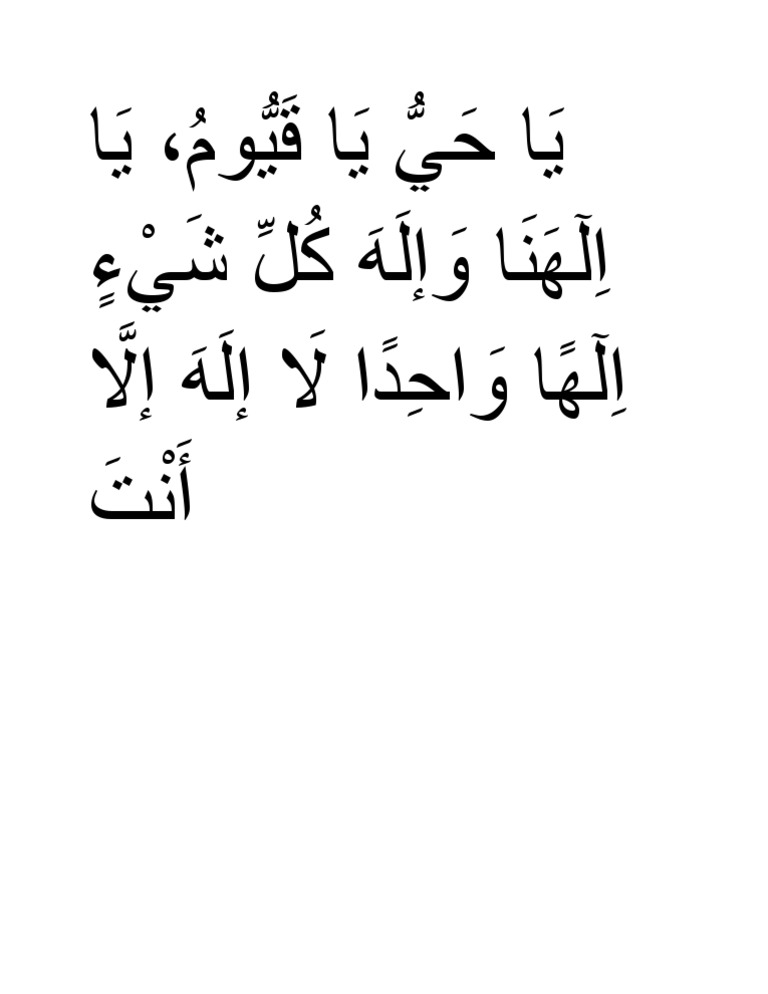 يَا حَيُّ يَا قَيُّومُ، يَا
اِلٓهَنَا وَإِلَهَ كُلِّ شَيْءٍ
اِلٓهًا وَاحِدًا لَا إِلَهَ إِلَّا
أَنْتَ